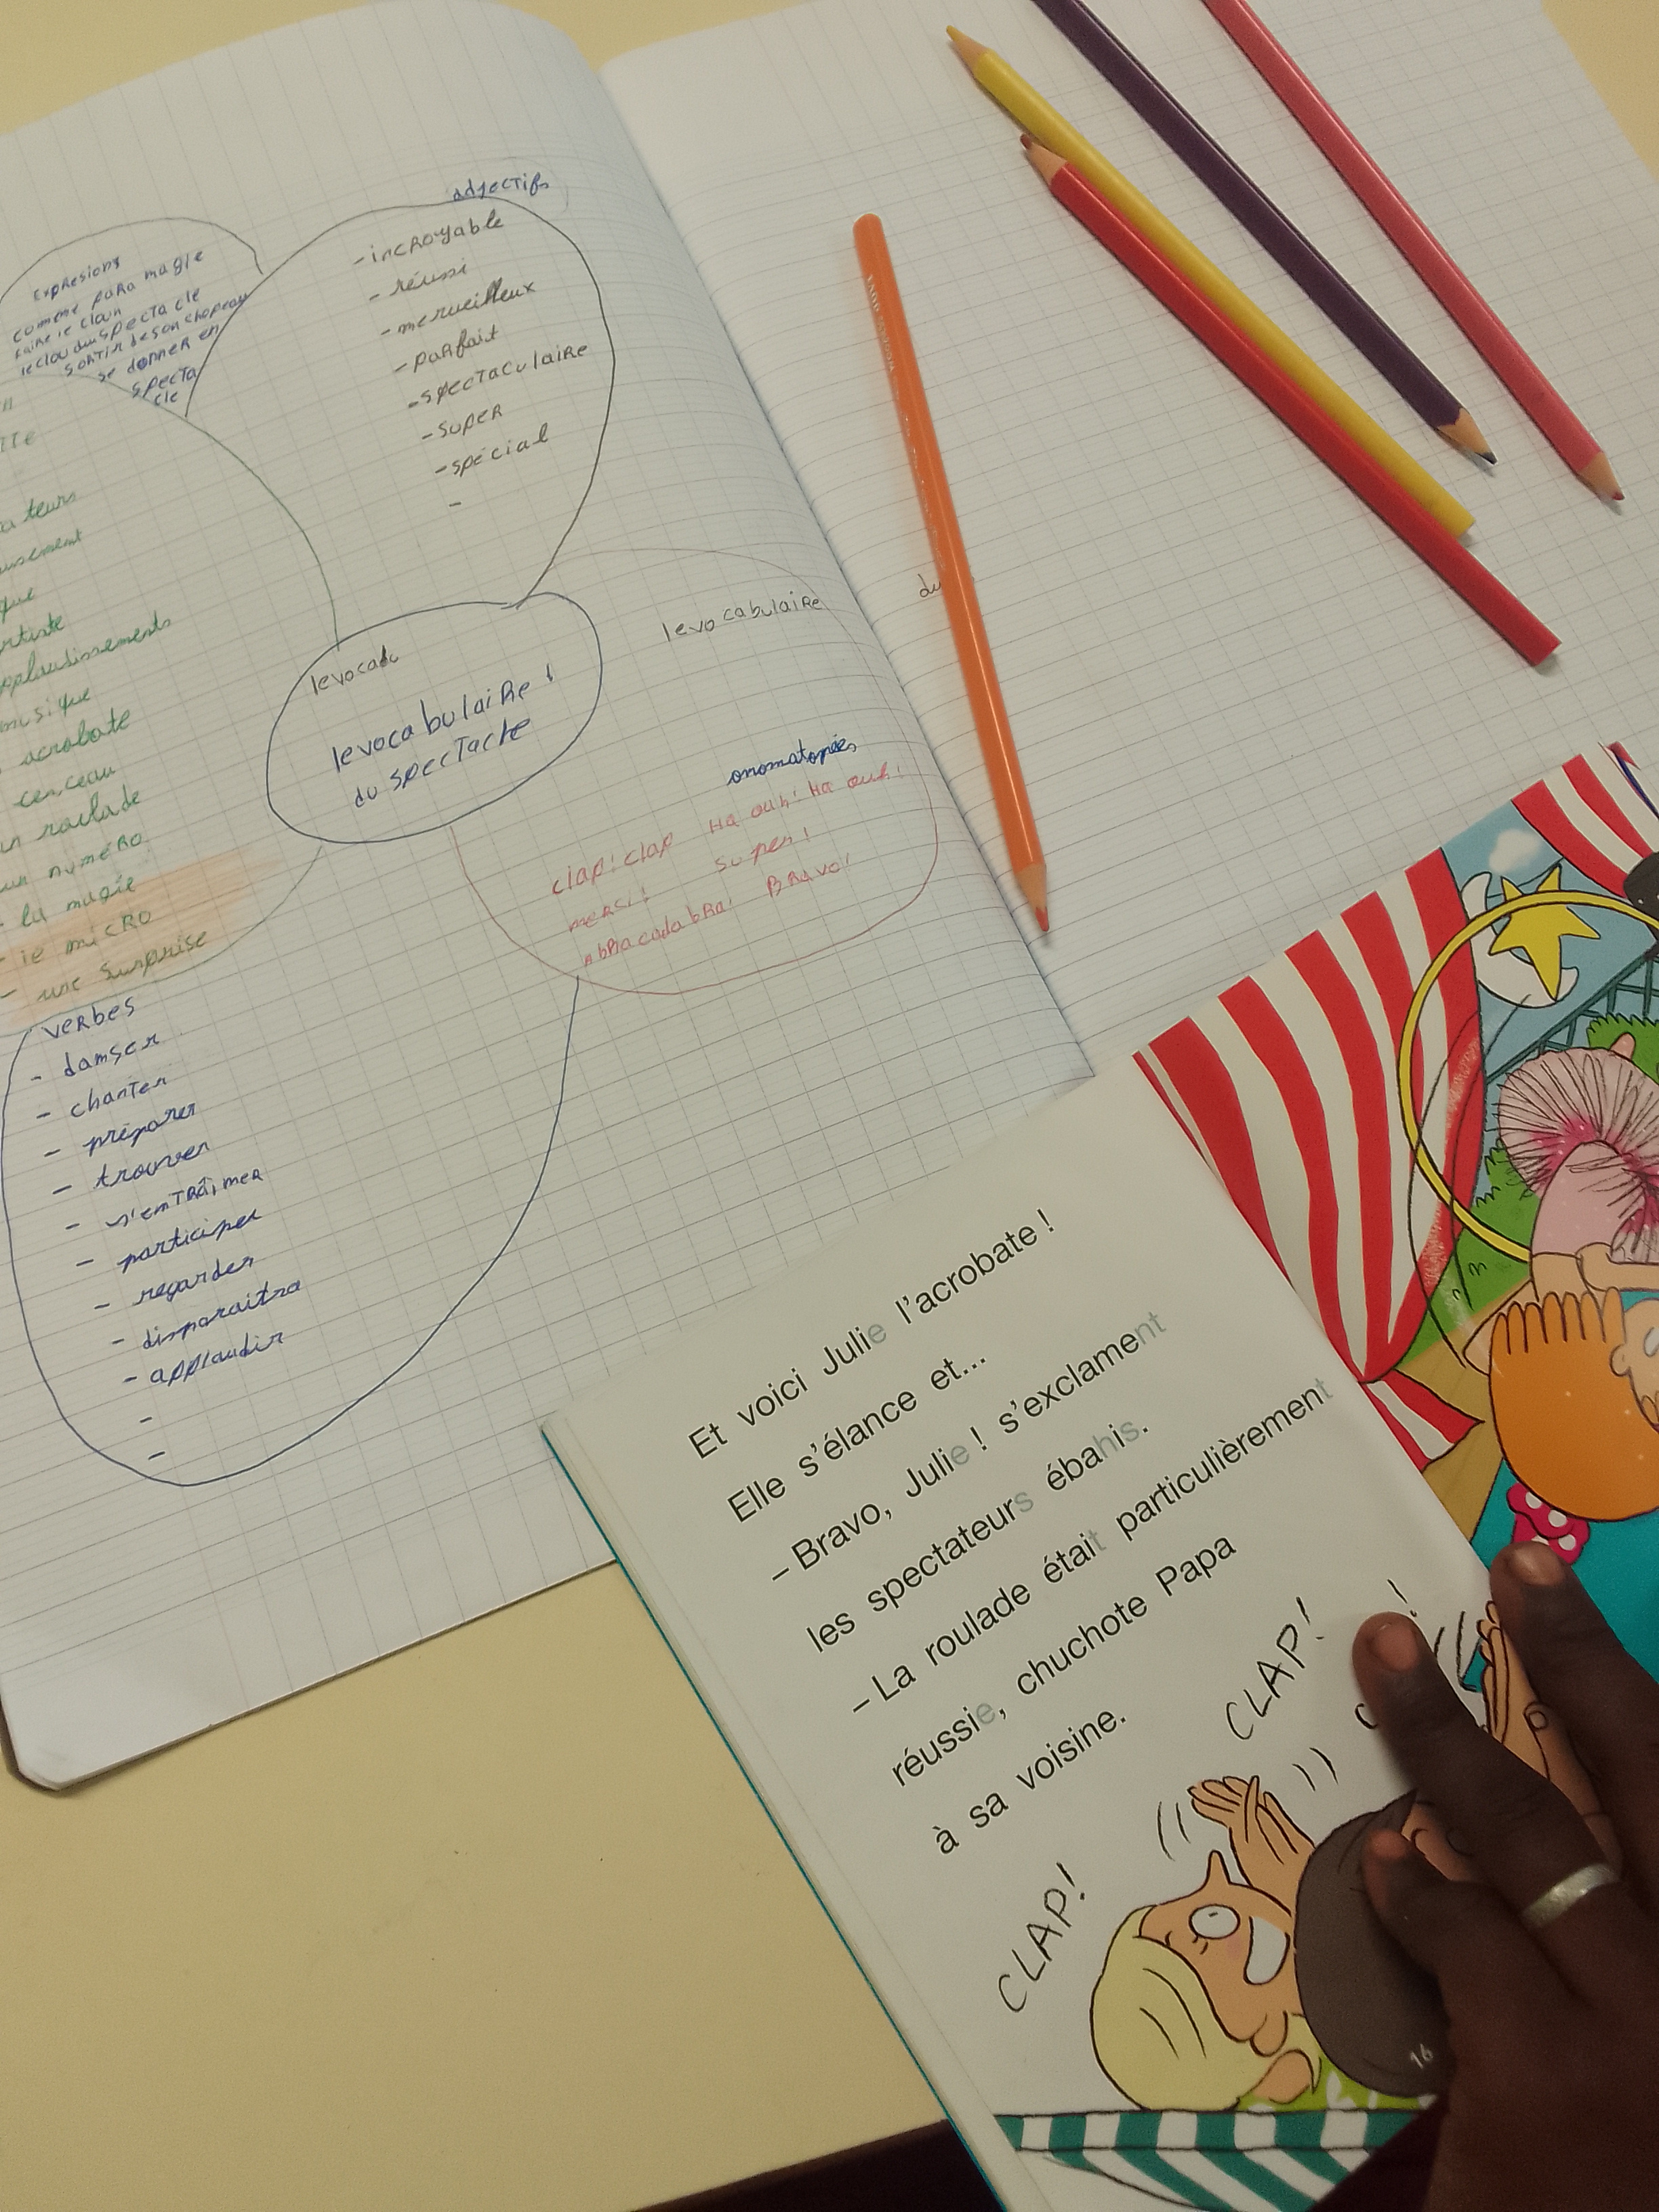 expresions
comme para magie
faire le clown
le clou du spectacle
sortir de son chapeau
se donner en
specta
cle
adjectifs
- incroyable
- réussi
- merveilleux
- parfait
- spectaculaire
- super
- spécial
-
teurs
musique
acrobate
cerceau
roulade
numéro
- la magie
- le micro
- une surprise
levocabu
levocabulaire !
du spectacle
levocabulaire
du
onomatopées
clap! clap Ha ouh! Ha ouh!
mersi! super!
Abracadabra! Bravo!
verbes
- danser
- chanter
- préparer
- trouver
- s'entraîmer
- participer
- regarder
- disparaitra
- applaudir
-
-
Et voici Julie l'acrobate !
Elle s'élance et...
– Bravo, Julie ! s'exclament
les spectateurs ébahis.
– La roulade était particulièrement
réussie, chuchote Papa
à sa voisine.
CLAP!
CLAP!
16